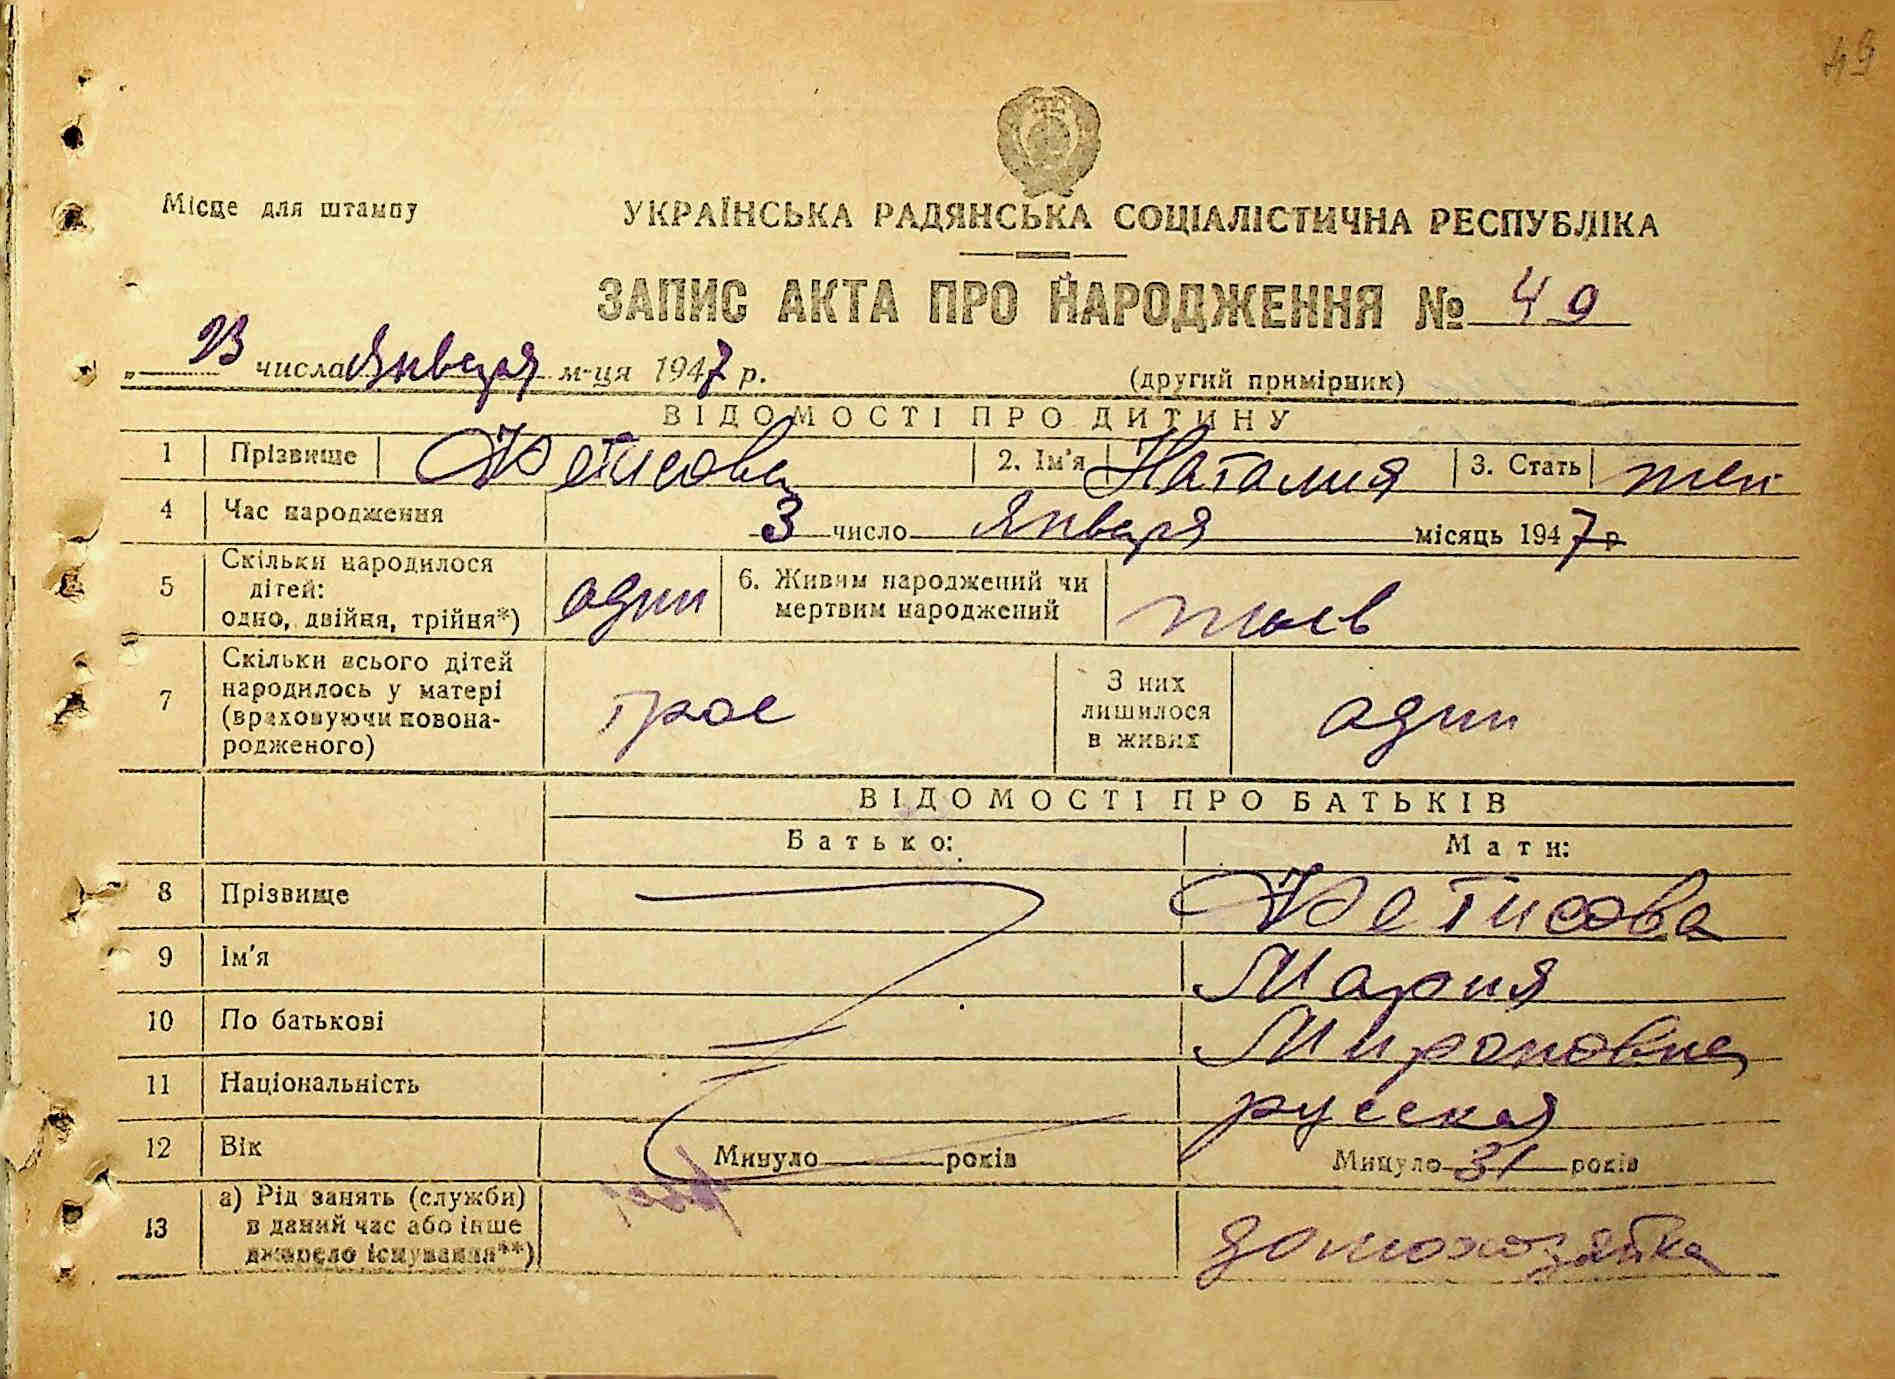 49
Місце для штампу
УКРАЇНСЬКА РАДЯНСЬКА СОЦІАЛІСТИЧНА РЕСПУБЛІКА
ЗАПИС АКТА ПРО НАРОДЖЕННЯ № 49
„ 23 числа Января м-ця 1947 р.
(другий примірник)
ВІДОМОСТІ ПРО ДИТИНУ
1 Прізвище Фетисова 2. Ім'я Наталия 3. Стать жен
4 Час народження 3 число Января місяць 1947 р
5 Скільки народилося
дітей:
одно, двійня, трійня*) один 6. Живим народжений чи
мертвим народжений
7 Скільки всього дітей
народилось у матері
(враховуючи новона-
родженого) трое З них
лишилося
в живих один
ВІДОМОСТІ ПРО БАТЬКІВ
Батько: Мати:
8 Прізвище Фетисова
9 Ім'я Мария
10 По батькові Мироновна
11 Національність русская
12 Вік Минуло років Минуло 31 років
13 а) Рід занять (служби)
в даний час або інше
джерело існування**) домохозяйка